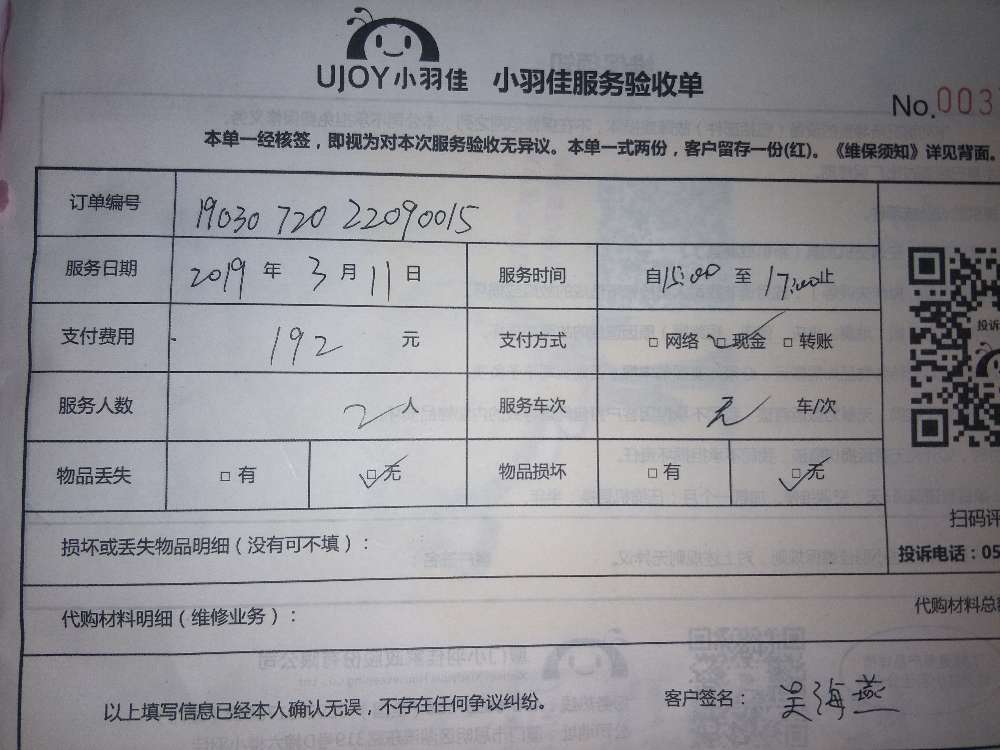 UJOY小羽佳 小羽佳服务验收单
No.003
本单一经核签，即视为对本次服务验收无异议。本单一式两份，客户留存一份(红)。《维保须知》详见背面。
订单编号 19030 720 22090015
服务日期 2019 年 3 月 11 日 服务时间 自15:00 至 17:00止
支付费用 192 元 支付方式 □ 网络 ☑ 现金 □ 转账
投诉
服务人数 2 人 服务车次 无 车/次
物品丢失 □ 有 ☑ 无 物品损坏 □ 有 ☑ 无
扫码评
损坏或丢失物品明细（没有可不填）：
投诉电话：05
代购材料明细（维修业务）： 代购材料总
以上填写信息已经本人确认无误，不存在任何争议纠纷。 客户签名： 吴海燕